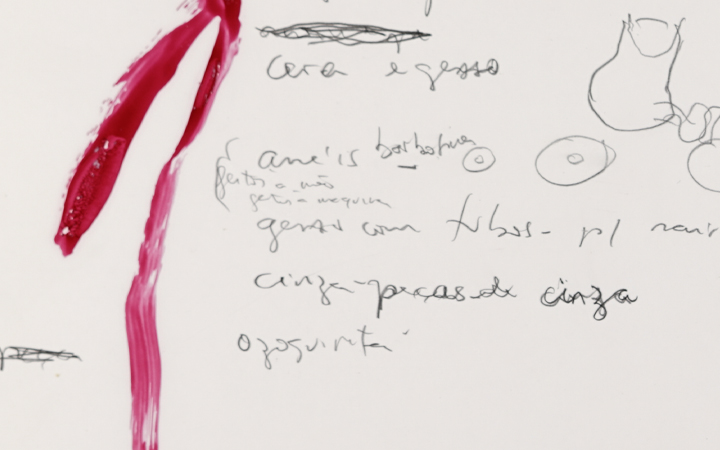 cera e gesso
anéis barbotina
feitos a mão
feitos a maquina
gesso com tubos - p/
cinza - peças de cinza
ozoquirita